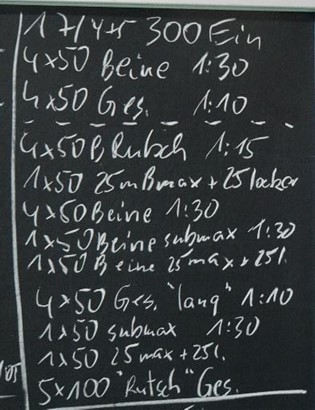 300 Ein
4x50 Beine 1:30
4x50 Ges. 1:10
4x50 B Rutsch 1:15
1x50 25m Bmax + 25 locker
4x50 Beine 1:30
1x50 Beine submax 1:30
1x50 Beine 25max + 25l.
4x50 Ges. "lang" 1:10
1x50 submax 1:30
1x50 25max + 25l.
5x100 "Rutsch" Ges.